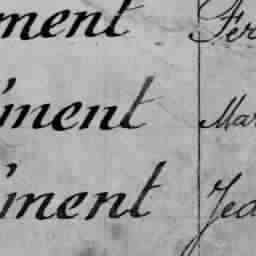 ment Fer
ment Mar
ment Jea